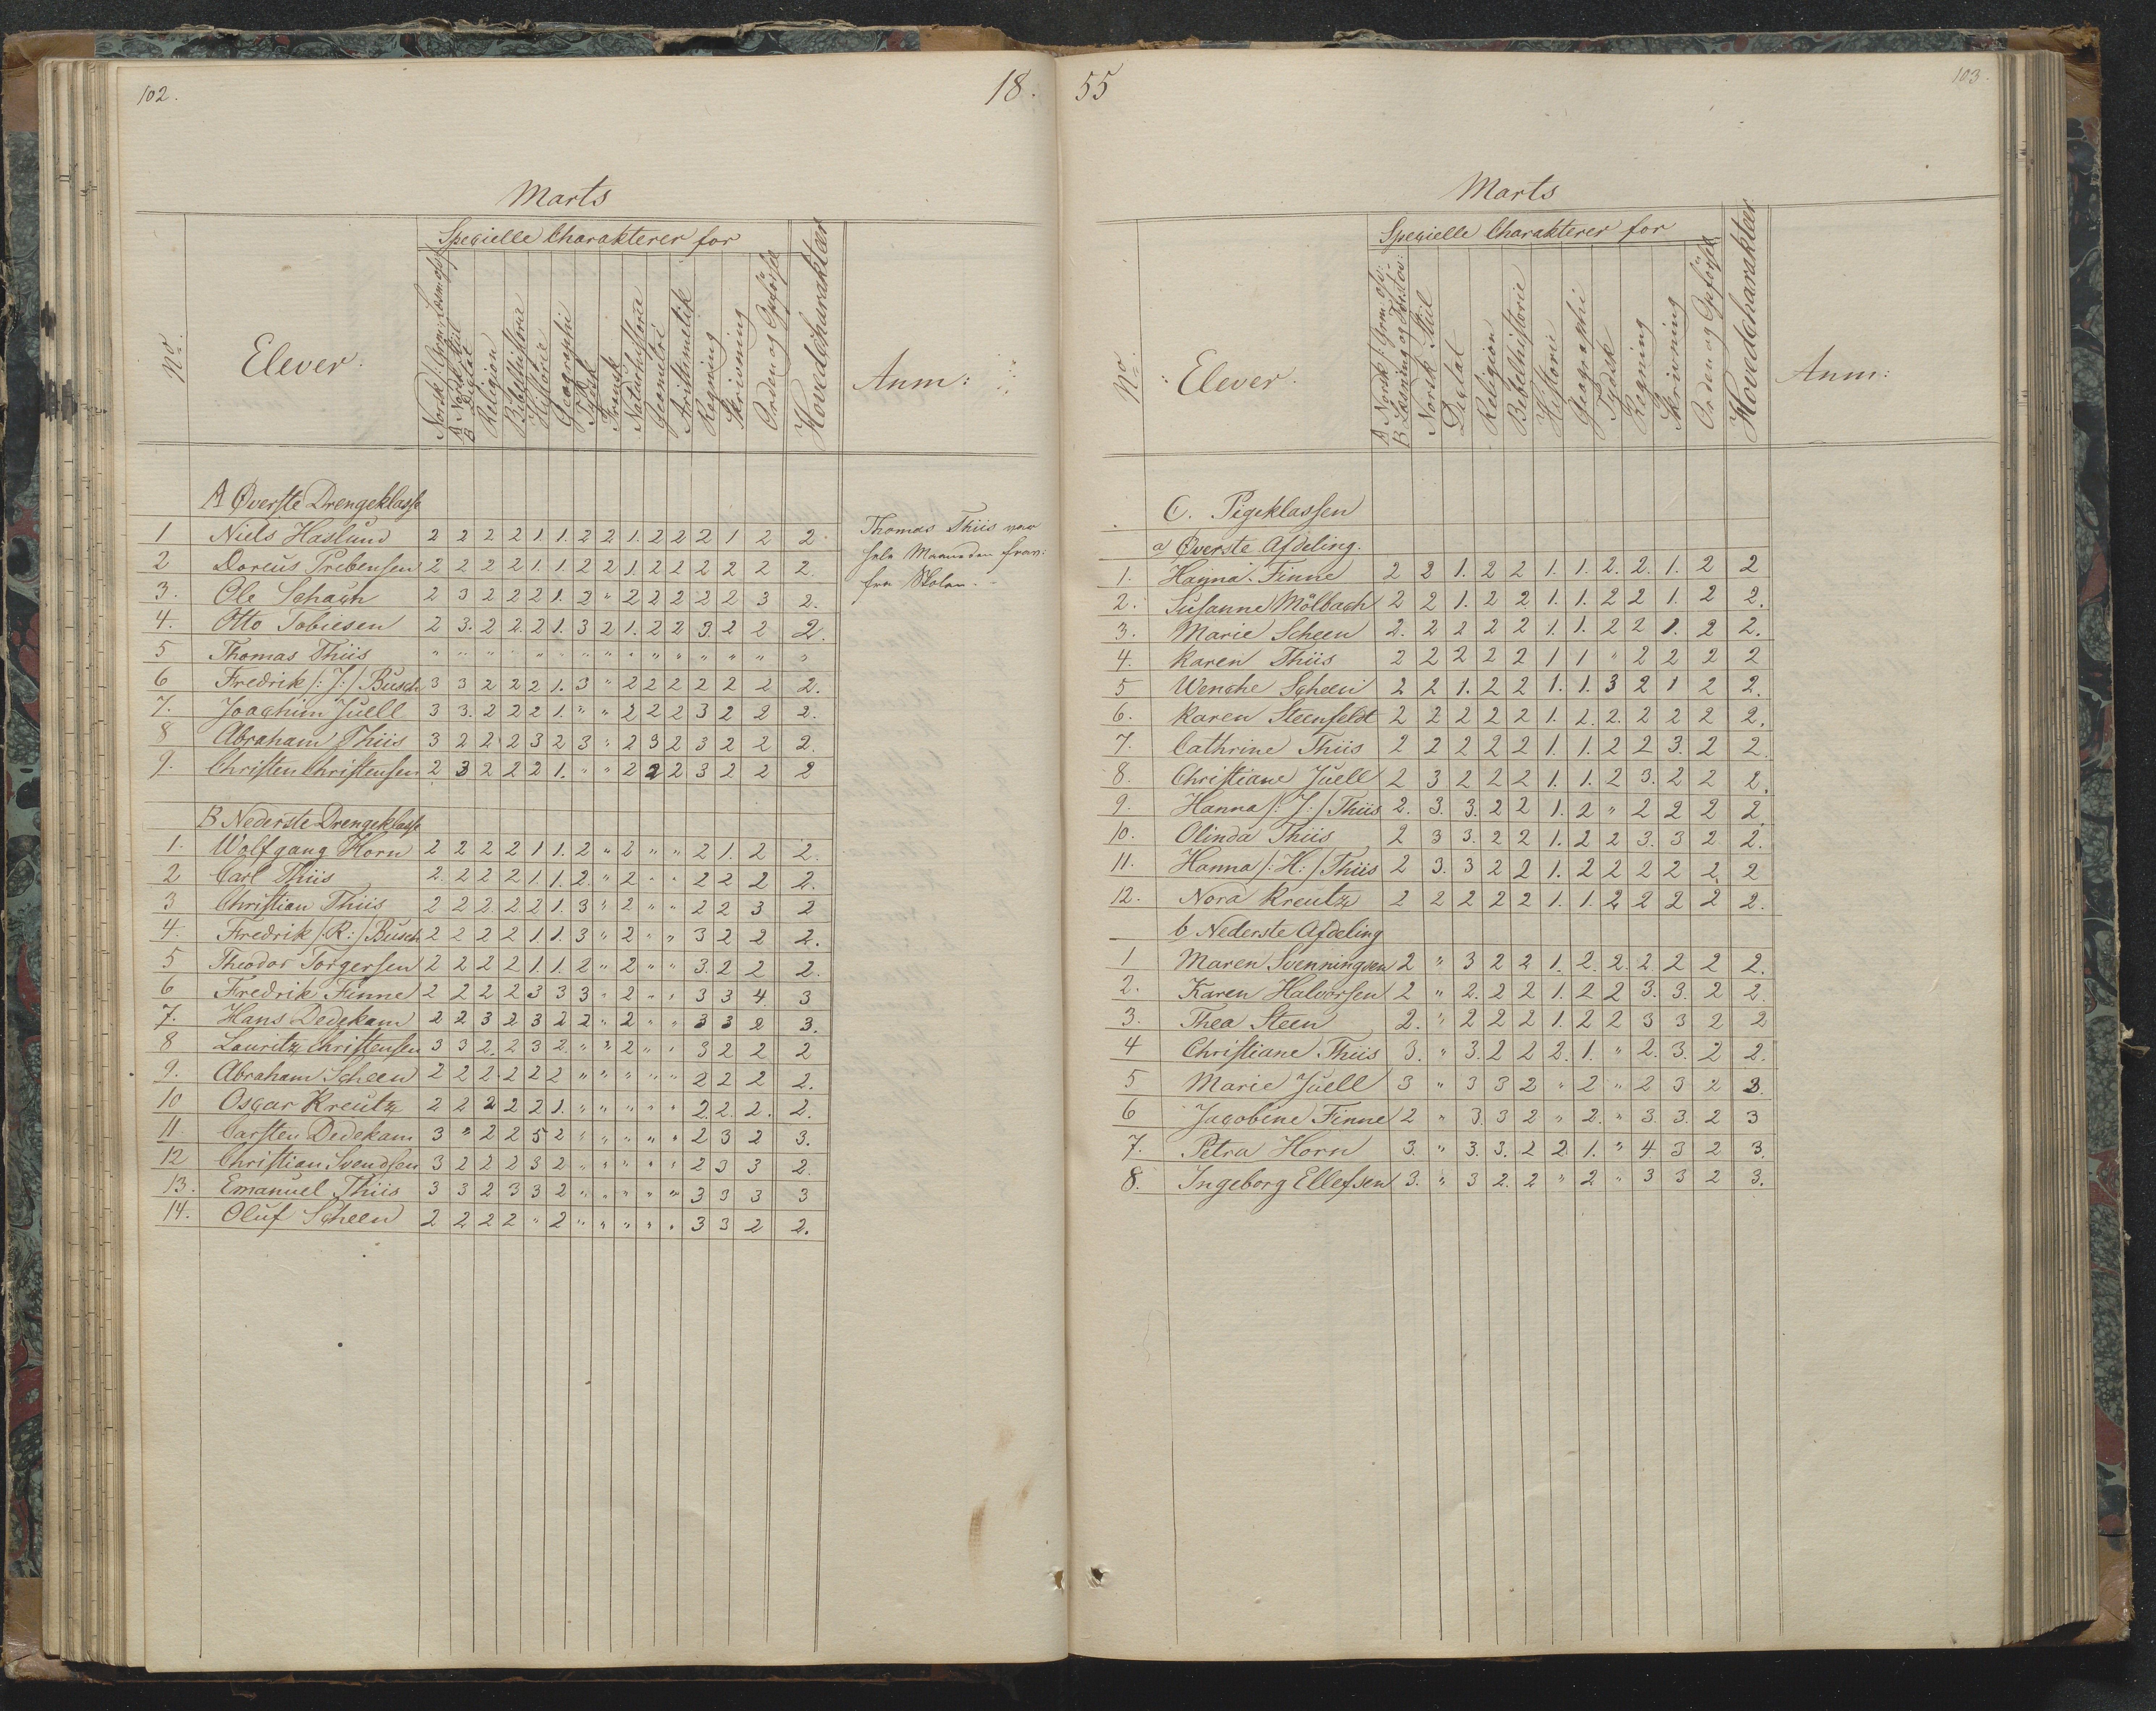 102.
18.
Marts
Specielle Charakterer for
No.
Elever.
Religion
Bibelhistorie
Historie
Geographi
Tydsk
Fransk
Naturhistorie
Geometri
Arithmetik
Regning
Skrivning
Orden og Opførsel
Hovedcharakter
Anm:
A Øverste Drengeklasse
1 Niels Haslund 2 2 2 2 1. 1. 2 2 1. 2 2 2 1 2 2.
2 Doreus Prebensen 2 2 2 2 1. 1. 2 2 1. 2 2 2 2 2 2.
3. Ole Schach 2 3 2 2 2 1. 2 " 2 2 2 2 2 3 2.
4. Otto Tobiesen 2 3. 2 2. 2 1. 3 2 1. 2 2 3. 2 2 2.
5 Thomas Thiis " " " " " " " " " " " " " " "
6 Fredrik /: J: / Busch 3 3 2 2 2 1. 3 " 2 2 2 2 2 2 2.
7. Joachim Juell 3 3. 2 2 2 1. " " 2 2 2 3 2 2 2.
8 Abraham Thiis 3 2 2 2 3 2 3 " 2 3 2 3 2 2 2.
9. Christen Christensen 2 3 2 2 2 1. " " 2 2 2 3 2 2 2
Thomas Thiis var
hele Maaneden frav:
fra Skolen.
B Nederste Drengeklasse
1. Wolfgang Horn 2 2 2 2 1 1. 2 " 2 " " 2 1. 2 2.
2 Carl Thiis 2. 2 2 2 1. 1. 2. " 2 " " 2 2 2 2.
3 Christian Thiis 2 2 2. 2 2 1. 3 " 2 " " 2 2 3 2
4. Fredrik /: R: / Busch 2 2 2 2 1. 1. 3 " 2 " " 3 2 2 2.
5 Theodor Torgersen 2 2 2 2 1. 1. 2 " 2 " " 3. 2 2 2.
6 Fredrik Finne 2 2 2 2 3 3 3 " 2 " " 3 3 4. 3
7. Hans Dedekam 2 2 3 2 3 2 2 " 2 " " 3 3 2 3.
8 Lauritz Christensen 3 3 2. 2 3 2. " " 2 " " 3 2 2 2
9. Abraham Scheen 2 2 2. 2 2 2 " " " " " 2 2 2 2.
10 Oscar Kreutz 2 2 2 2 2 1. " " " " " 2. 2. 2. 2.
11. Carsten Dedekam 3 " 2 2 5 2 " " " " " 2 3 2 3.
12 Christian Svendsen 3 2 2 2 3 2 " " " " " 2 3 3 2.
13. Emanuel Thiis 3 3 2 3 3 2 " " " " " 3 3 3 3
14. Oluf Scheen 2 2 2 2 " 2 " " " " " 3 3 2 2.
55
103.
Marts
Specielle Charakterer for
No.
Elever.
A Norsk /: Grm: ofv:
B Læsning og Forstov:
Norsk Stiil
Dictat
Religion
Bibelhistorie
Historie
Geographi
Tydsk
Regning
Skrivning
Orden og Opførsel
Hovedcharakter
Anm:
C. Pigeklassen
a) Øverste Afdeling.
1. Hanna Finne 2 2 1. 2 2 1. 1. 2. 2. 1. 2 2
2. Susanne Mölbach 2 2 1. 2 2 1. 1. 2 2 1. 2 2.
3. Marie Scheen 2. 2 2 2 2 1. 1. 2 2 1. 2 2.
4. Karen Thiis 2 2 2 2 2 1 1 " 2 2 2 2
5 Wenche Scheen 2 2 1. 2 2 1. 1. 3 2 1 2 2.
6. Karen Steenfeldt 2 2 2 2 2 1. 2. 2. 2 2 2 2.
7. Cathrine Thiis 2 2 2 2 2 1. 1. 2 2 3. 2 2.
8. Christiane Juell 2 3 2 2 2 1. 1. 2 3. 2 2 2.
9. Hanna /: J: / Thiis 2. 3. 3. 2 2 1. 2 " 2 2 2 2.
10. Olinda Thiis 2 3 3. 2 2 1. 2 2 3. 3 2 2.
11. Hanna /: H: / Thiis 2 3. 3 2 2 1. 2 2 2 2 2. 2
12. Nora Kreutz 2 2 2 2 2 1. 1. 2 2 2 2 2.
b Nederste Afdeling
1 Maren Svenningsen 2 " 3 2 2 1. 2. 2. 2. 2 2 2.
2. Karen Halvorsen 2 " 2. 2 2 1. 2 2 3. 3. 2 2.
3. Thea Steen 2. " 2 2 2 1. 2 2 3 3 2 2
4 Christiane Thiis 3. " 3. 2 2 2. 1. " 2. 3. 2 2.
5 Marie Juell 3 " 3 3 2 " 2 " 2 3 2 3.
6 Jacobine Finne 2 " 3. 3 2 " 2. " 3. 3. 2 3
7. Petra Horn 3. " 3. 3. 2 2. 1. " 4 3 2 3.
8. Ingeborg Ellefsen 3. " 3 2. 2 " 2 " 3 3 2 3.